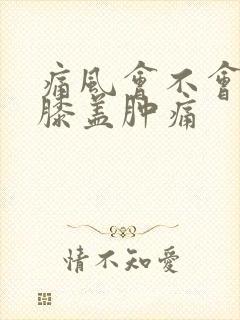 痛風會不會
膝盖肿痛
情不知愛